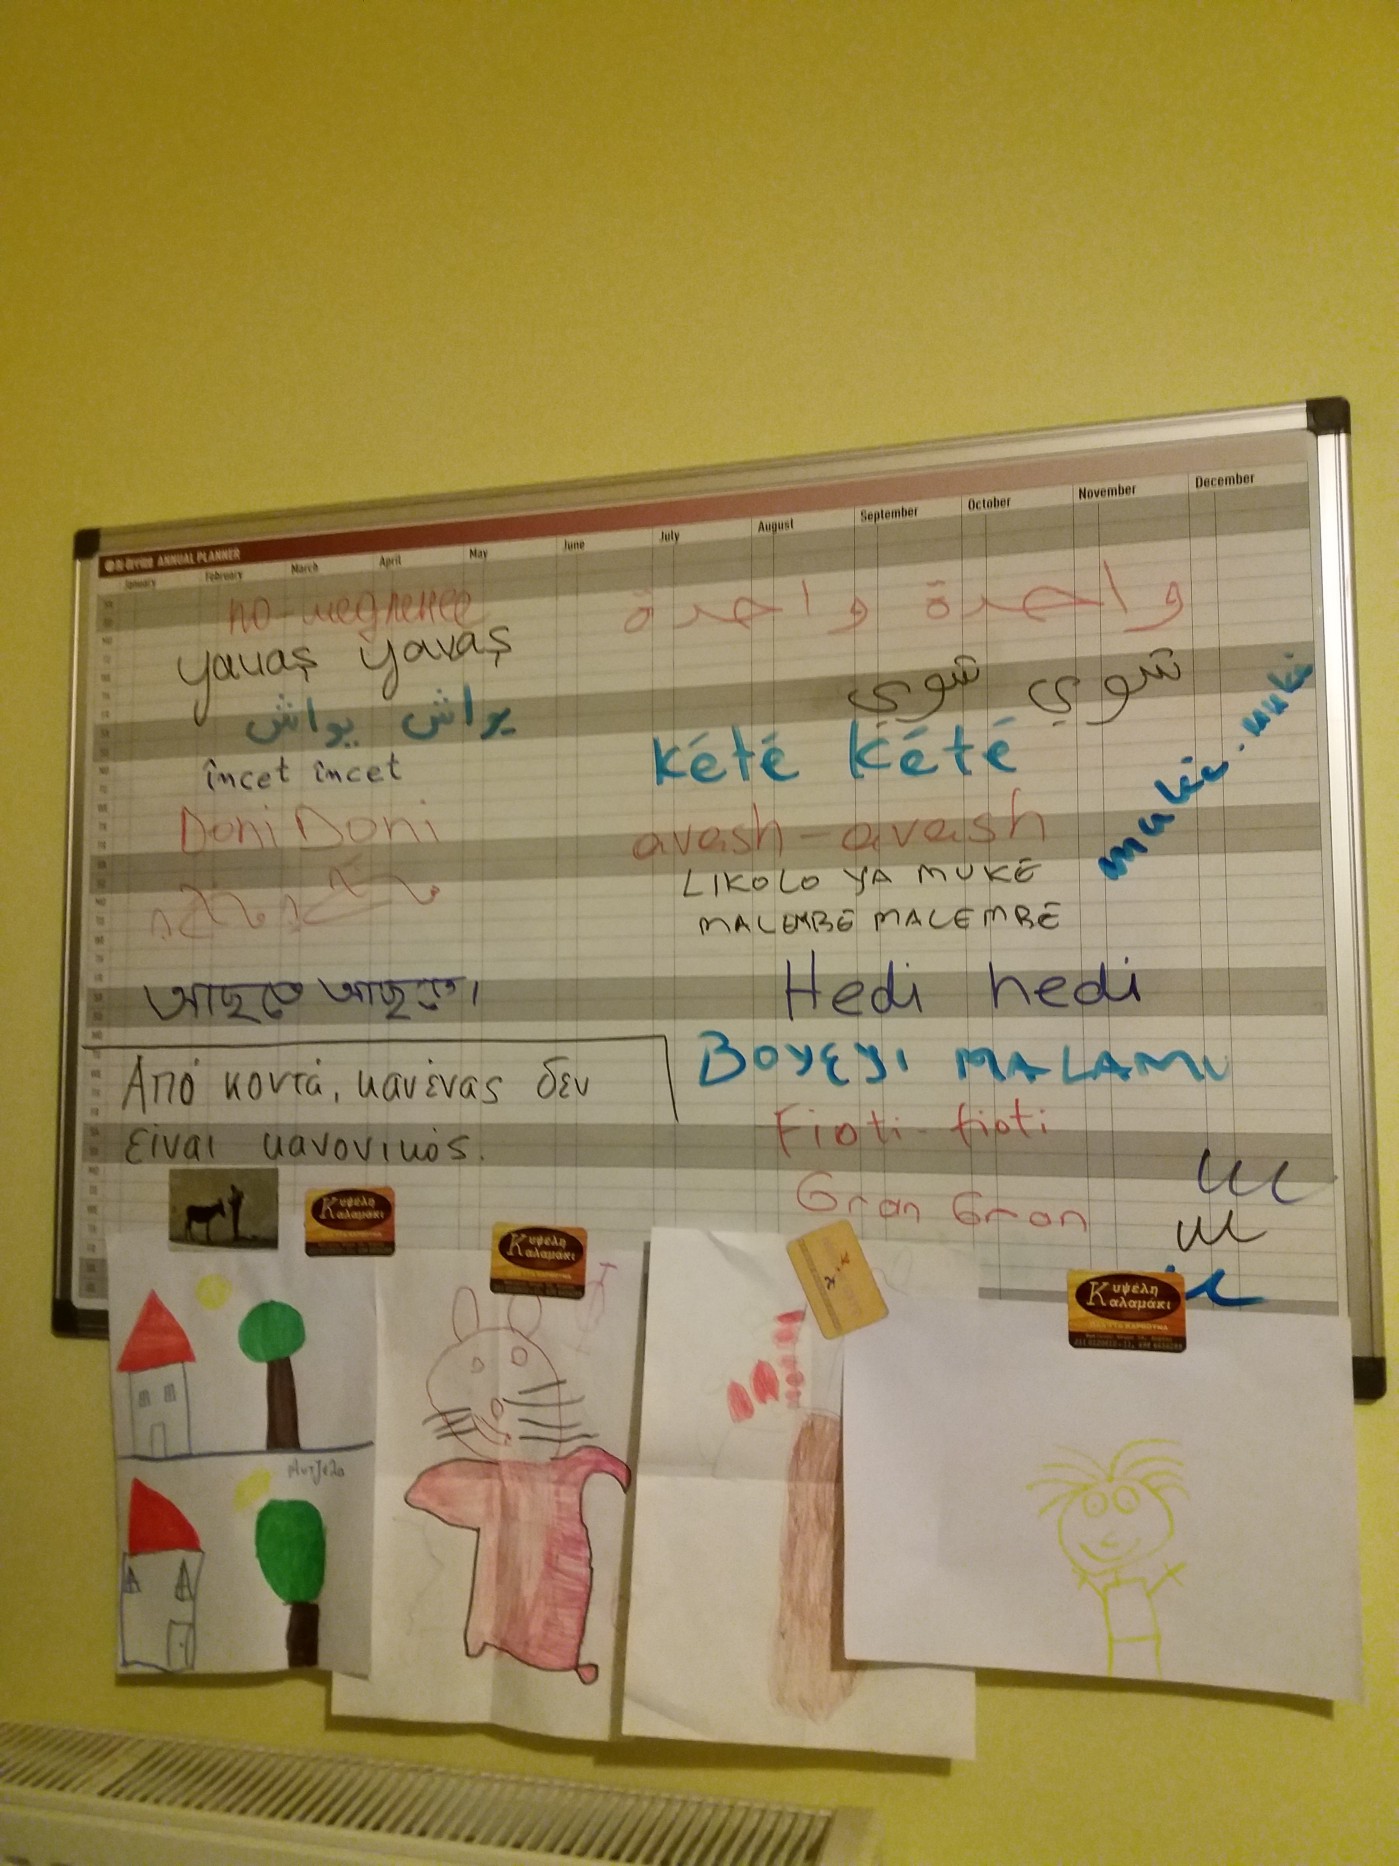 ANNUAL PLANNER
January February March April May June July August September October November December
по-медленее
yavaş yavaş
یواش یواش
încet încet
Doni Doni
আস্তে আস্তে।
Από κοντά, κανένας δεν
είναι κανονικός.
واحدة واحدة
شوي شوي
kété kété
avash-avash
LIKOLO YA MUKE
MALEMBE MALEMBE
Hedi hedi
BOYEYI MALAMU
Fioti-fioti
Gran Gran
Κυψέλη
Καλαμάκι
Κυψέλη
Καλαμάκι
Κυψέλη
Καλαμάκι